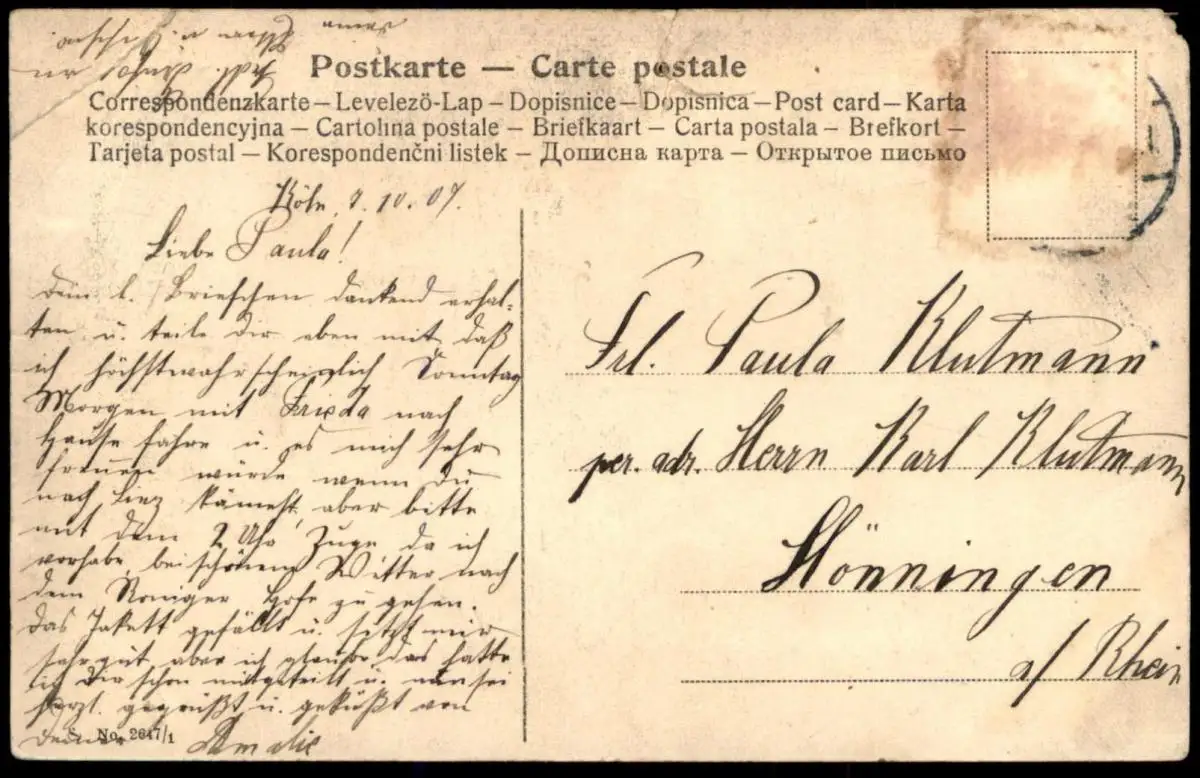 Postkarte — Carte postale
Correspondenzkarte – Levelező-Lap – Dopisnice – Dopisnica – Post card – Karta
korespondencyjna – Cartolina postale – Briefkaart – Carta postala – Brefkort –
Tarjeta postal – Korespondenčni listek – Дописна карта – Открытое письмо
Köln, 7. 10. 07.
Liebe Paula!
Dein l. Briefchen dankend erhal-
ten u. teile Dir eben mit, daß
ich höchstwahrscheinlich Sonntag
Morgen mit Frieda nach
Hause fahre u. es mich sehr
freuen würde wenn Du
nach Linz kämest, aber bitte
mit dem 2 Uhr Zuge, da ich
vorhabe, bei schönem Wetter nach
dem Roniger Hofe zu gehen.
Das Jakett gefällt u. sitzt mir
sehr gut, aber ich glaube das hatte
ich Dir schon mitgeteilt u. nun sei
herzl. gegrüßt u. geküßt von
Deiner Amalie
S. No. 2647/1
Frl. Paula Klutmann
per. adr. Herrn Karl Klutmann
Hönningen
a/ Rhein